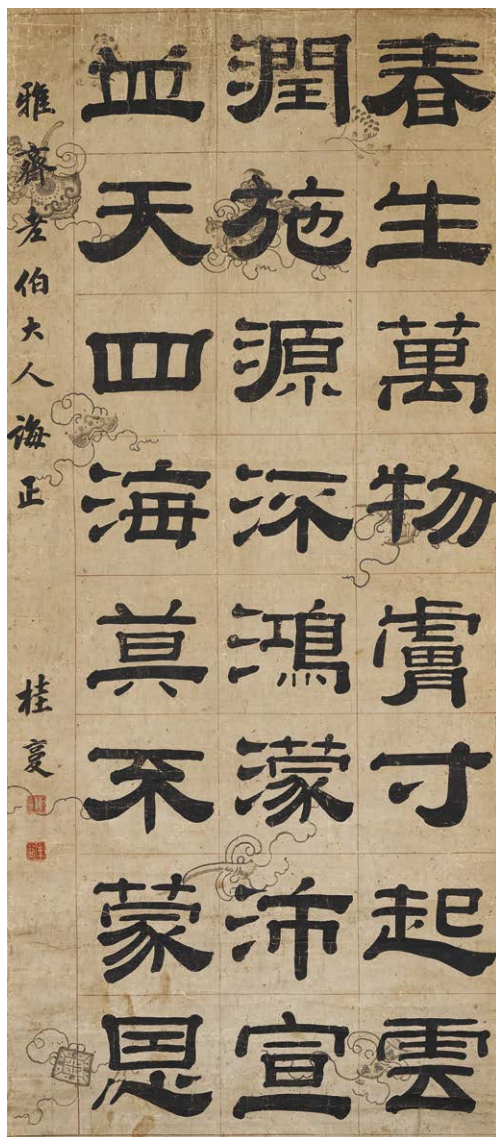 春生萬物膚寸起雲
潤施源深鴻濛沛宣
並天四海莫不蒙恩
雅齋老伯大人誨正
桂